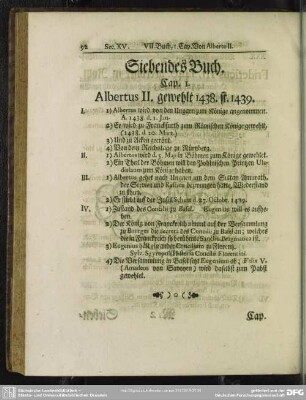 92 Sec. XV. VII Buch, 1 Cap. Von Alberto II.
Siebendes Buch.
Cap. I.
Albertus II. gewehlt 1438. st. 1439.
I. 1) Albertus wird von den Ungarn zum Könige angenommen.
A. 1438. d. 1. Jan.
2) Er wird zu Franckfurth zum Römischen Könige gewehlt,
(1438. d. 20. Mart.)
3) Und zu Achen gecrönt.
4) Von dem Reichstage zu Nürnberg.
II. 1) Albertus wird d. 5. May in Böhmen zum Könige gewehlt.
2) Ein Theil der Böhmen will den Pohlnischen Printzen
zum Könige haben.
III. 1) Albertus gehet nach Ungarn um dem Sultan
der Servien und bezwungen hatte, Widerstand
zu thun.
2) Er stirbt auf der Rückreise d. 27. Octobr. 1439.
IV. 1) Zustand des Concilii zu Basel. Eugenius will es aufheben.
2) Der König von Franckreich nimmt auf der Versammlung
zu Bourges die decreta des Concilii zu Basel an; welches
die in Franckreich so berühmte Sanctio Pragmatica ist.
3) Eugenius hält ein ander Concilium zu Florentz.
Sylv. Sguropuli Historia Concilii Florentini.
4) Die Versammlung zu Basel setzt Eugenium ab; Felix V.
(Amadeus von Savoyen) wird daselbst zum Pabst
gewehlet.
Cap.